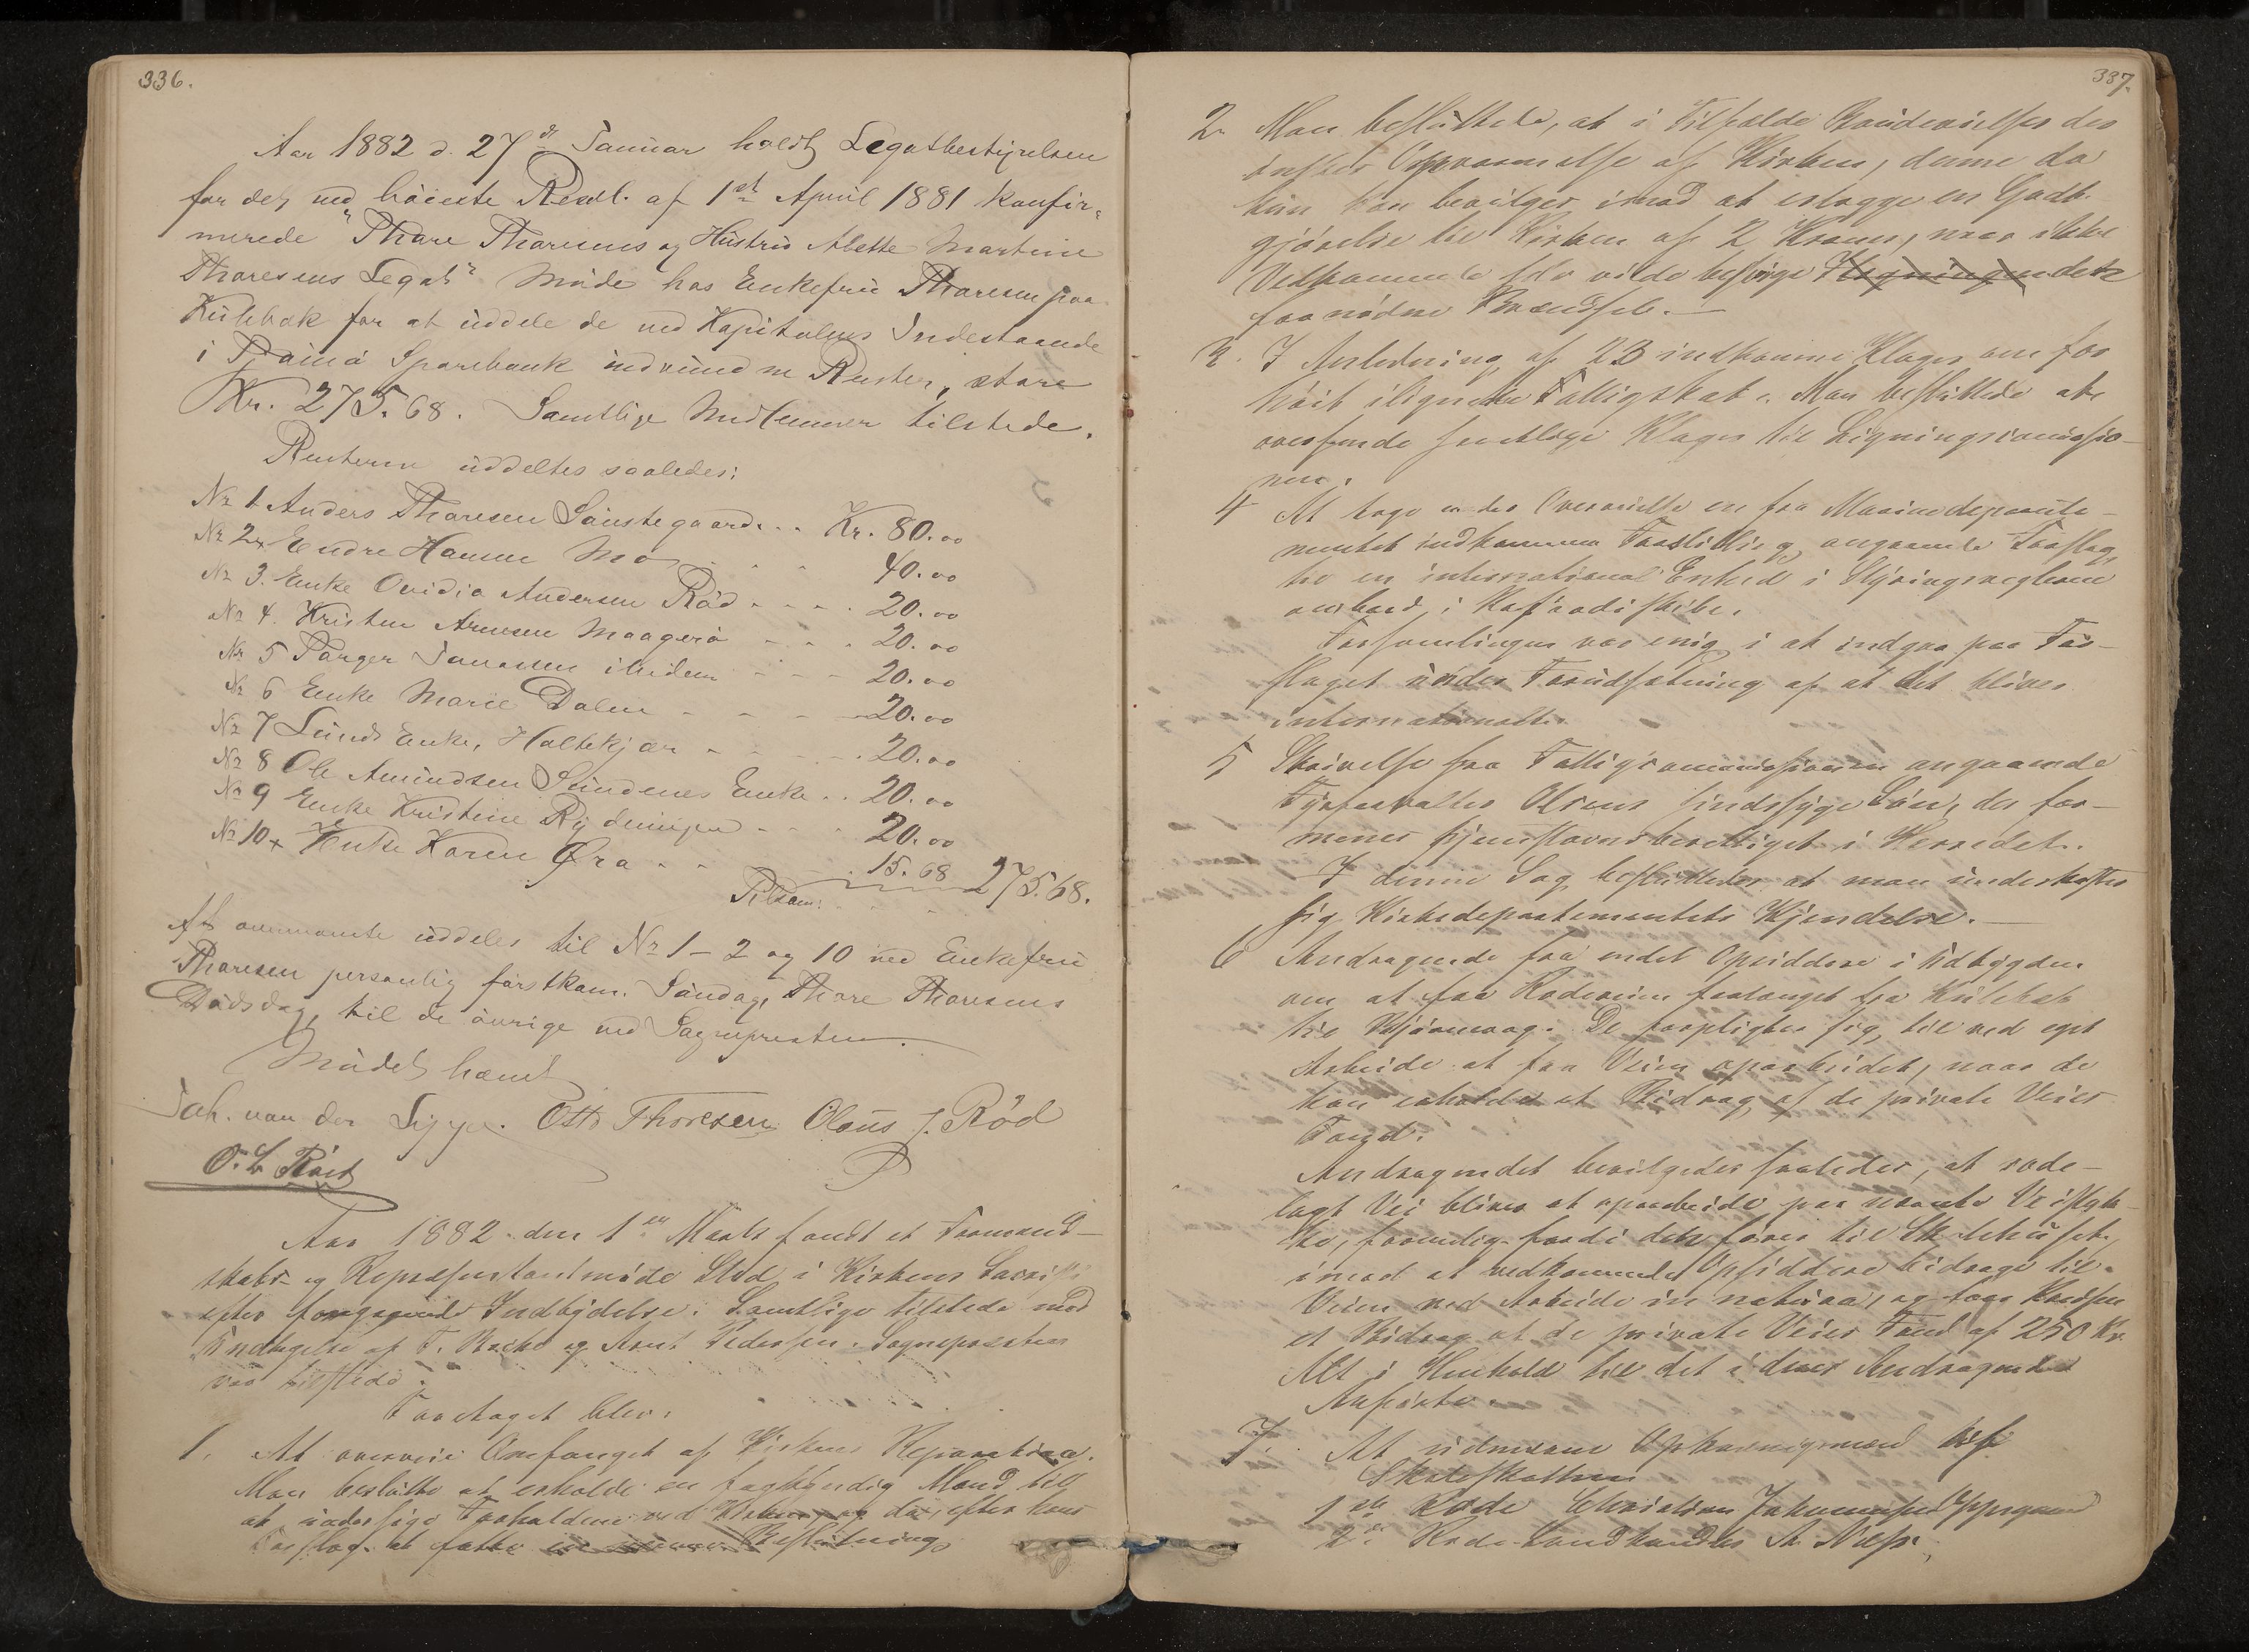 336.
Aar 1882 d. 27de Januar holdt Legatbestyrelsen
for det ved høieste Resol. af 1ste April 1881 konfir-
merede "Thore Thoresens og Hustru Alette Martine
Thoresens Legat" Møde hos Enkefru Thoresen paa
Kulebak for at uddele de ved Kapitalens Indestaaende
i Sparebank indvundne Renter, store
Kr. 275.68. Samtlige Medlemmer tilstede.
Renterne uddeltes saaledes:
No 1 Anders Thoresen Kr. 80.00
No 2x Endre Hansen Mo 40.00
No 3. Enke Ovidia Andersen Rød 20.00
No 4. Kristen Arnesen Maagerø 20.00
No 5 Torger 20.00
No 6 Enke Marie Dalen 20.00
No 7 Lunds Enke, Holtekjær 20.00
No 8 Ole Amundsen Sundenes Enke 20.00
No 9 Enke Kristine 20.00
No 10x Enke Karen Øra 15.68
Tilsam: 275.68.
At ovennævnte uddeles til No 1-2 og 10 ved Enkefru
Thoresen personlig førstkom. Søndag, Thore Thoresens
Dødsdag, til de øvrige ved Sognepresten.
Mødet hævet
Joh. van der Otto Thoresen Olaus J. Rød
O. L.
Aar 1882 den 1ste Marts fandt et Formand-
skabs- og Repræsentantmøde Sted i Kirkens Sacristi
efter foregaaende Indbydelse. Samtlige tilstede med
Undtagelse af T. Bache og Arnt Pedersen. Sognepræsten
var tilstede.
Foretaget blev:
1. At overveie Omfanget af Kirkens Reparation.
Man besluttede at erholde en fagkyndig Mand til
at undersøge Forholdene ved Kirken og da, efter hans
Forslag at fatte Beslutning.
337.
2. Man besluttede, at i Tilfælde des
ønskes Opvarmelse af Kirken, denne da
kun kan bevilges imod at erlægge en Godt-
gjørelse til Kirken af 2 Kroner, naar ikke
Vedkommende selv vilde besørge det
fornødne Brændsel.
3. I Anledning af 23 indkomne Klager om for
høit ilignede Fattigskat. Man besluttede at
oversende samtlige Klager til Ligningscommissio-
nen.
4 At tage under Overveielse en fra Marinedeparte-
mentet indkommen Forestilling angaaende Forslag
til en international Enhed i Styringsreglerne
ombord i Kofardiskibe.
Forsamlingen var enig i at indgaa paa For-
slaget under Forudsætning af at det bliver
internationalt.
5 Skrivelse fra Fattigcommissionen angaaende
Fyrforvalter Olsens sindssyge Søn, der for-
menes hjemstavnsberettiget i Herredet.
I denne Sag besluttedes at man underkaster
sig Kirkedepartementets Kjendelse.
6 Andragende fra endel Opsiddere i Udbygden
om at faa Rodeveien forlænget fra Kulebak
til De forpligter sig til ved eget
Arbeide at faa Veien oparbeidet, naar de
kan erholde et Bidrag af de private Veies
Fond.
Andragendet bevilgedes saaledes, at rode-
lagt Vei bliver at oparbeide paa nævnte Veistyk-
ke, fornemlig fordi den fører til Skolehuset,
imod at vedkommende Opsiddere bidrage til
Veien med Arbeide in natura, og faar
et Bidrag af de private Veies Fond af 250 Kr.
Alt i Henhold til det i deres Andragende
Anførte.
7. At udnævne Opkrævningsmænd
Skoleskatten
1ste Rode Christian Johannesen
2. Rode Landhandler A.